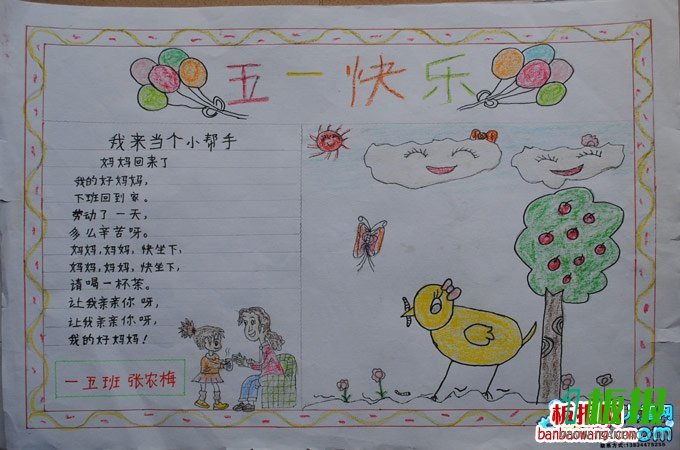 五一快乐
我来当个小帮手
妈妈回来了
我的好妈妈，
下班回到家。
劳动了一天，
多么辛苦呀。
妈妈，妈妈，快坐下，
妈妈，妈妈，快坐下，
请喝一杯茶。
让我亲亲你呀，
让我亲亲你呀，
我的好妈妈！
一五班 张农梅
banbaowang.com